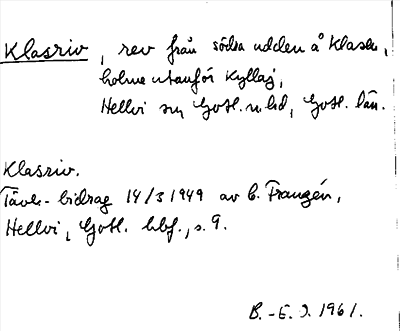 Klasriv, rev från södra udden å Klasen,
holme utanför Kyllaj,
Hellvi sn, Gotl. n. hd, Gotl. län.
Klasriv.
Tävl.- bidrag 14/3 1949 av C. Franzén,
Hellvi, Gotl. hbf., s. 9.
B.-E. J. 1961.